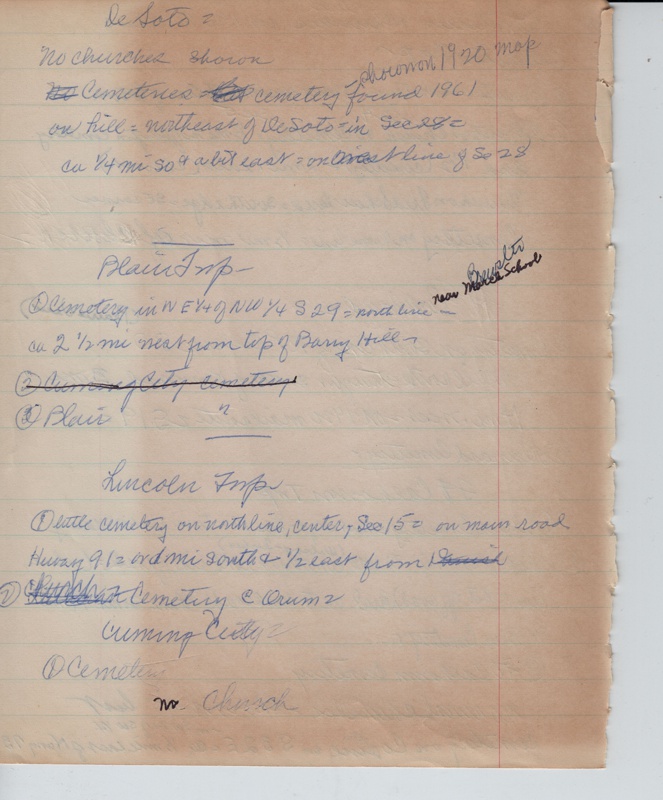 De Soto =
No churches shown
shown on 1920 map
No Cemeteries cemetery found 1961
on hill = northeast of DeSoto = in Sec 28 =
ca 1/4 mi So & a bit east = on west line of So 28
Blair Twp -
Brewster
near School
① Cemetery in N E 1/4 of NW 1/4 S 29 = north line -
ca 2 1/2 mi west from top of Barry Hill -
② Cuming City cemetery
③ Blair "
Lincoln Twp -
① little cemetery on north line, center, Sec 15 = on main road
Hiway 91 = mi south & 1/2 east from Danish
② Church Cemetery @ Orum =
Cuming City =
① Cemetery
no Church